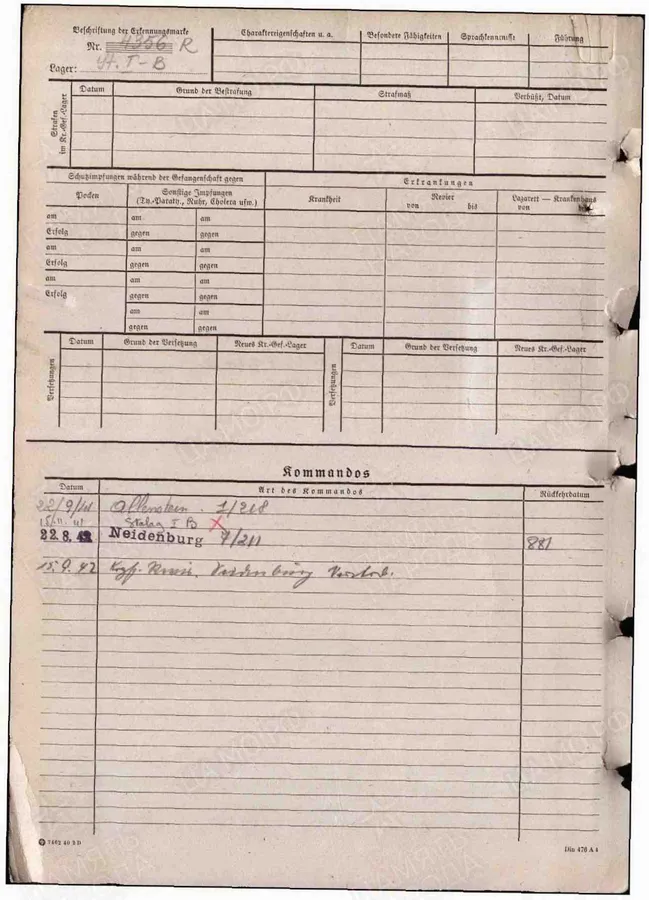 Beschriftung der Erkennungsmarke
Nr. 4356 R
Lager: St. I-B
Charaktereigenschaften u. a. Besondere Fähigkeiten Sprachkenntnisse Führung
Strafen im Kr.-Gef.-Lager
Datum Grund der Bestrafung Strafmaß Verbüßt, Datum
Schutzimpfungen während der Gefangenschaft gegen Erkrankungen
Pocken Sonstige Impfungen Krankheit Revier Lazarett — Krankenhaus
(Ty.-Paraty., Ruhr, Cholera usw.) von bis von bis
am am am
Erfolg gegen gegen
am am am
Erfolg gegen gegen
am am am
Erfolg gegen gegen
am am
gegen gegen
Versetzungen Datum Grund der Versetzung Neues Kr.-Gef.-Lager Versetzungen Datum Grund der Versetzung Neues Kr.-Gef.-Lager
Kommandos
Datum Art des Kommandos Rückkehrdatum
22/9/41 Allenstein 1/218
15/11.41 Stalag I B X
22.8.42 Neidenburg 7/211 881
15.9.42 Neidenburg
7462 40 3 D Din 476 A 4